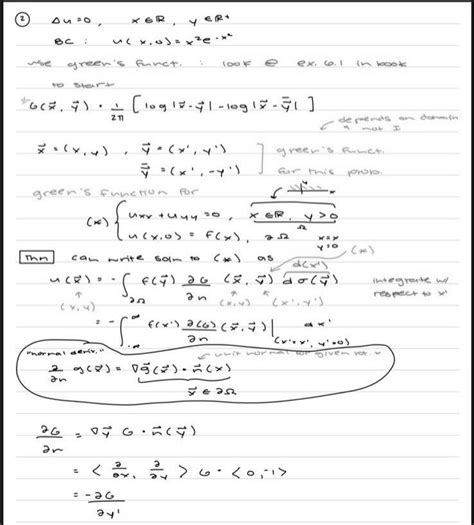 ② Δu=0, x∈ℝ, y∈ℝ+
BC: u(x,0)=x²e^-x²
use green's funct. : look @ ex. 6.1 in book
to start
G(x⃗, y⃗) = 1/2π [log|x⃗-y⃗| - log|x⃗-ȳ⃗|]
depends on domain
& not f
x⃗=(x,y), y⃗=(x',y')
ȳ⃗=(x',-y')
green's funct.
for this prob.
green's function for
(*) { uxx+uyy=0, x∈ℝ, y>0
Ω
u(x,0)=f(x), ∂Ω x=x
y=0
Thm can write soln to (*) as (*)
d(x')
u(x⃗) = -∫∂Ω f(y⃗) ∂G/∂n (x⃗,y⃗) dσ(y⃗) integrate w/
respect to x'
(x,y) (x,y) (x',y')
= -∫-∞^∞ f(x') ∂(G)/∂n (x⃗,y⃗)| dx'
(x'=x', y'=0)
"normal deriv." unit normal for given
∂/∂n g(x⃗) = ∇g(x⃗)·n⃗(x)
x⃗∈∂Ω
∂G/∂n = ∇y⃗ G·n⃗(y⃗)
= <∂/∂x, ∂/∂y> G·<0,-1>
= -∂G/∂y'